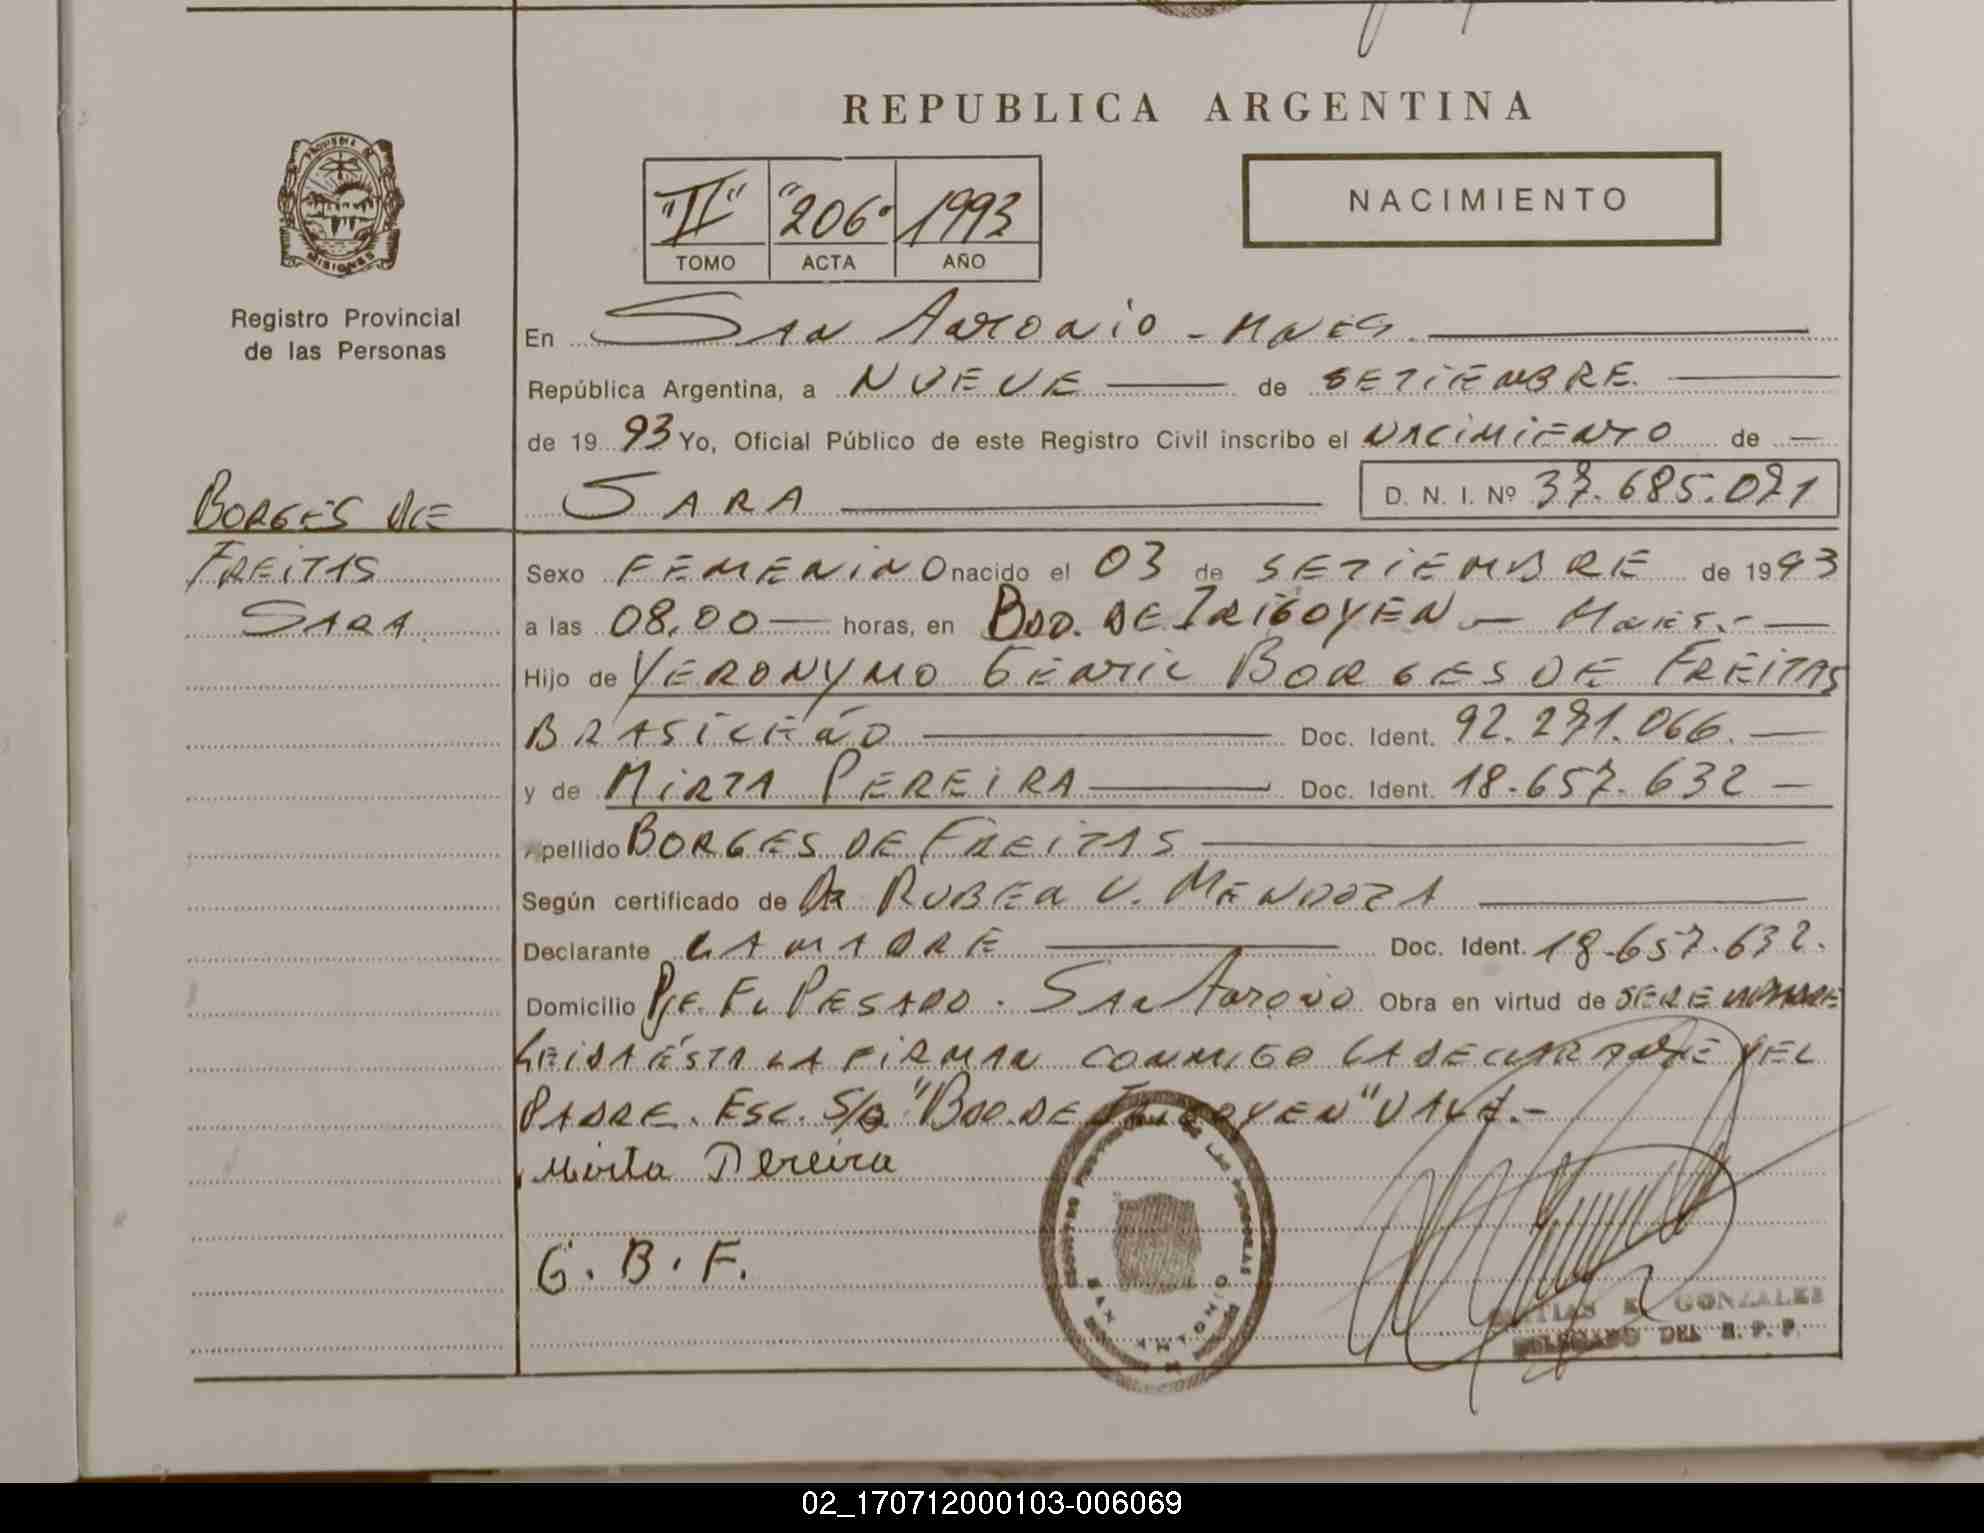 REPUBLICA ARGENTINA
PROVINCIA DE
MISIONES
Registro Provincial
de las Personas
"II" "206" 1993
TOMO ACTA AÑO
NACIMIENTO
En San Antonio - Mnes.
República Argentina, a NUEVE de SETIEMBRE.
de 1993 Yo, Oficial Público de este Registro Civil inscribo el NACIMIENTO de
SARA D. N. I. Nº 37.685.071
BORGES DE
FREITAS
SARA.
Sexo FEMENINO nacido el 03 de SETIEMBRE de 1993
a las 08,00 horas, en Bdo. DE IRIGOYEN - Mnes.-
Hijo de YERONYMO GENTIL BORGES DE FREITAS
BRASILEÑO Doc. Ident. 92.271.066.
y de MIRTA PEREIRA Doc. Ident. 18.657.632
Apellido BORGES DE FREITAS
Según certificado de Dr RUBEN V. MENDOZA
Declarante LA MADRE Doc. Ident. 18.657.632.
Domicilio Pje. EL PESADO. SAN ANTONIO Obra en virtud de SER EL
LEIDA ÉSTA LA FIRMAN CONMIGO LA DECLARANTE Y EL
PADRE. Esc. S/R "Bdo. DE IRIGOYEN" VALE.-
Mirta Pereira
G. B. F.
REGISTRO PROVINCIAL DE LAS PERSONAS
SAN ANTONIO
MATIAS R. GONZALEZ
DELEGADO DEL R. P. P.
02_170712000103-006069